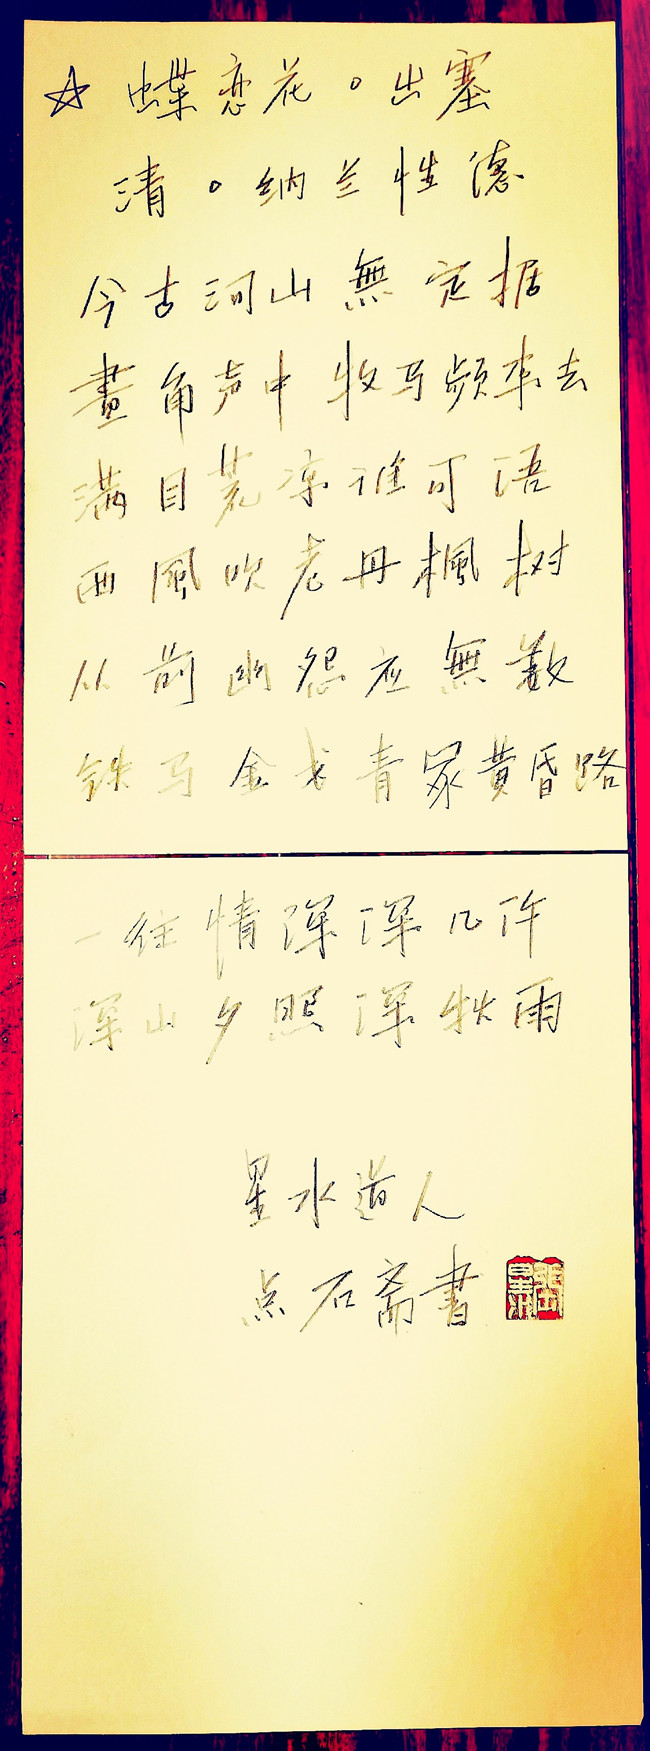 ☆ 蝶恋花。出塞
清。纳兰性德
今古河山無定据
畫角声中牧马频来去
满目荒凉谁可语
西風吹老丹楓树
从前幽怨应無数
铁马金戈青冢黄昏路
一往情深深几许
深山夕照深秋雨
星水道人
点石斋書